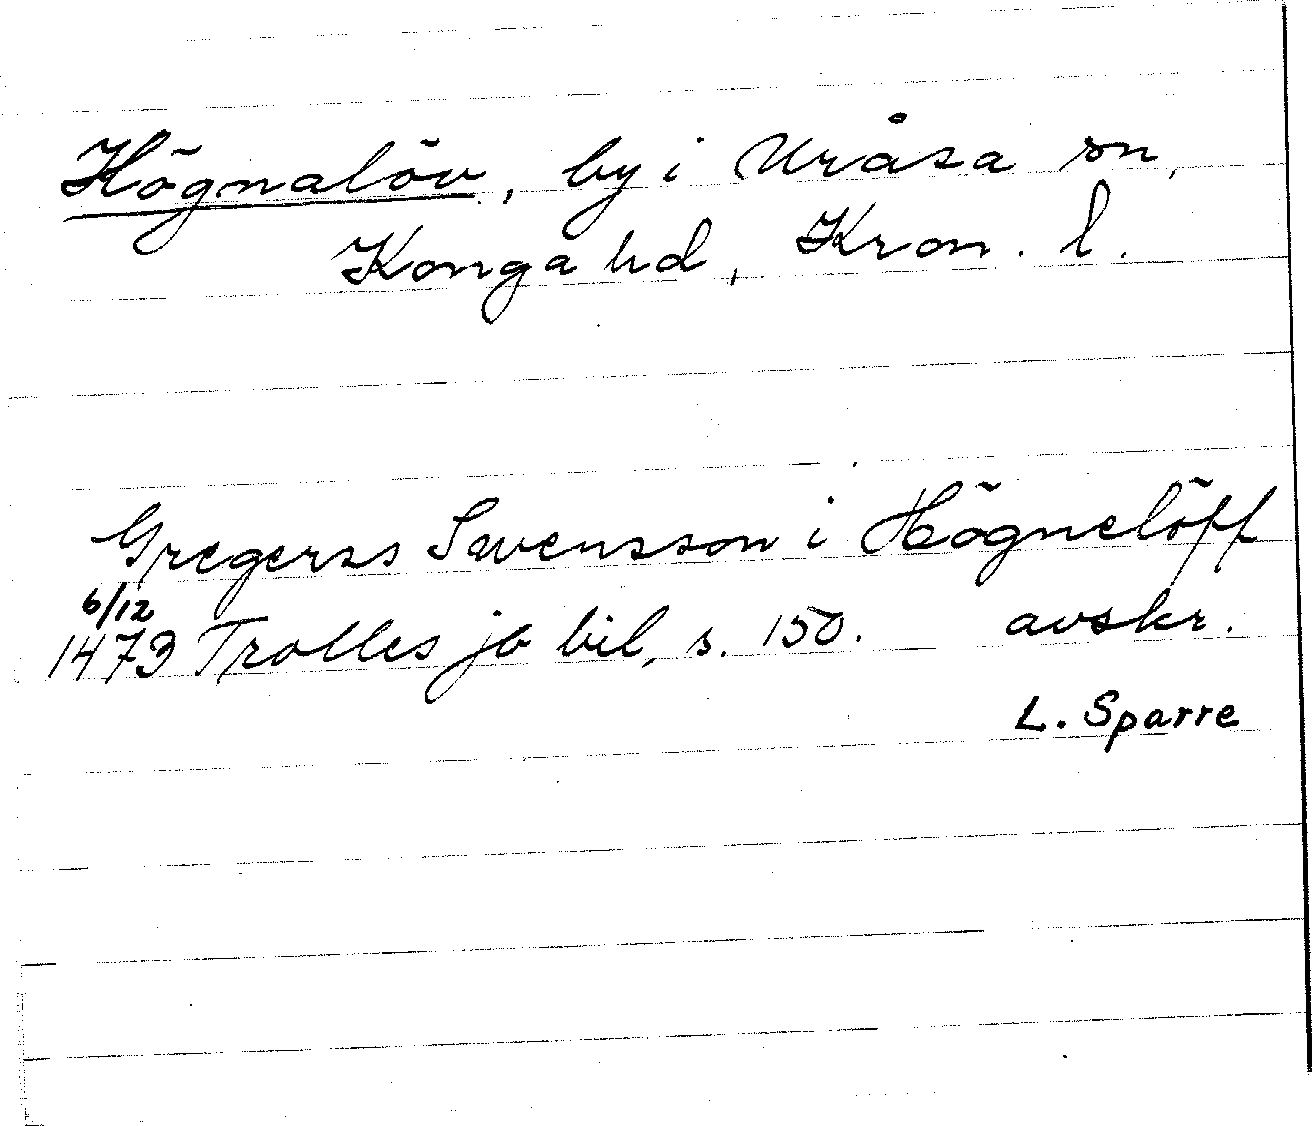 Högnalöv, by i Uråsa sn,
Konga hd, Kron. l.
Gregerss Swensson i Högnelöff
6/12
1473 Trolles jb bil, s. 150. avskr.
L. Sparre